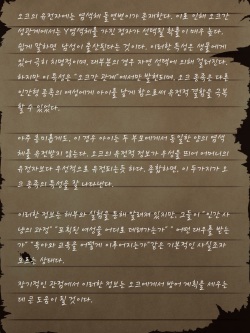 오크의 유전자에는 염색체 돌연변이가 존재한다. 이로 인해 오크간
성관계에서는 Y염색체를 가진 정자가 선택될 확률이 매우 높다.
쉽게 말하면 남성이 출산된다는 것이다. 이러한 특성은 생물에게
있어 극히 치명적이며, 대부분의 경우 자연 선택에 의해 걸러진다.
하지만 이 특성은 "오크간 관계"에서만 발현되며, 오크 종족은 다른
인간형 종족의 여성에게 아이를 낳게 함으로써 유전적 결함을 극복
할 수 있었다.
아주 흥미롭게도, 이 경우 아이는 두 부모에게서 동일한 양의 염색
체를 유전받지 않는다. 오크의 유전적 정보가 우성을 띄어 어머니의
유전자보다 우선적으로 유전되는듯 하다. 종합하면, 이 두가지가 오
크 종족의 특성을 잘 나타낸다.
이러한 정보는 해부와 실험을 통해 알려져 있지만, 그들이 "임신 사
냥의 과정" "포획된 여성을 어디로 데려가는가" "어떤 대우를 받는
가" "육아와 교육을 어떻게 이루어지는가"같은 기본적인 사실조차
모르는 상태다.
장기적인 관점에서 이러한 정보는 오크에게서 방어 계획을 세우는
데 큰 도움이 될 것이다.